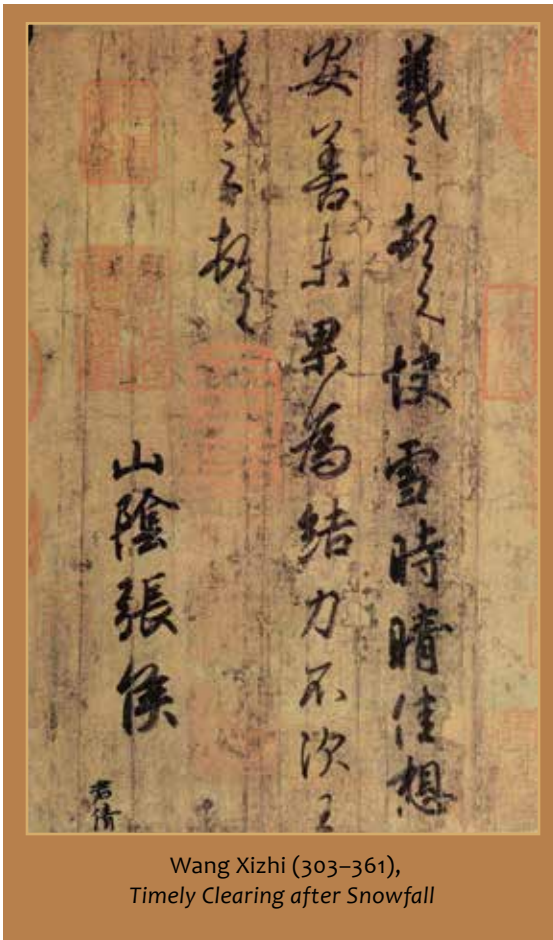 羲之頓首快雪時晴佳想
安善未果為結力不次王
羲之頓首
山陰張侯
君倩
Wang Xizhi (303–361),
Timely Clearing after Snowfall